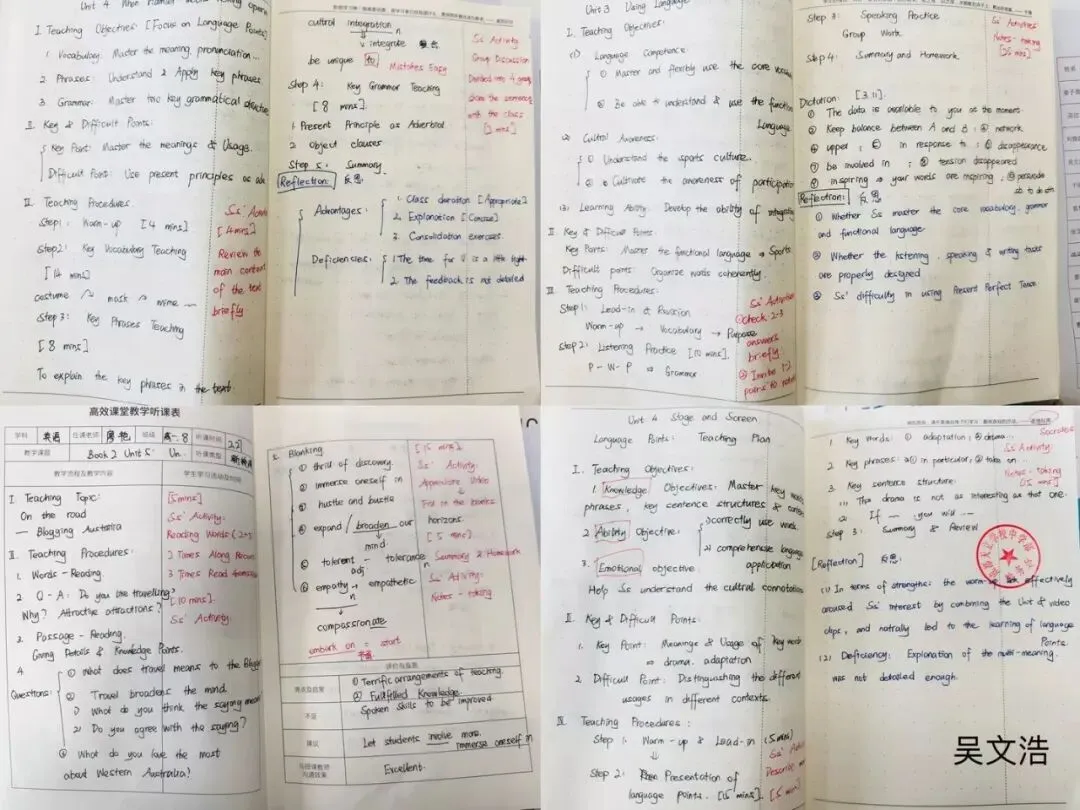 I. Teaching Objectives: [Focus on Language Points]
1. Vocabulary: Master the meaning, pronunciation...
2 Phrases: Understand & Apply key phrases
3 Grammar: Master two key grammatical structure
II. Key & Difficult Points:
Key Point: Master the meanings & Usage.
Difficult Point: Use present principles as adv
II. Teaching Procedures:
Step1: Warm-up [4 mins]
Step2: Key Vocabulary Teaching
[14 mins]
costume mask mime
Step 3: Key Phrases Teaching
[8 mins].
To explain the key phrases in the text
Ss' Activi
[4mins]
Review the
main content
of the text
briefly
cultral integration
n
integrate
be unique [to]
Mistakes Easy
Step 4: Key Grammar Teaching
[8 mins].
1. Present Principle as Adverbial
2 Object clauses
Step 5: Summary
Reflection: 反思
Advantages:
1. Class duration [Appropriate]
2. Explanation [Concise]
3. Consolidation exercises.
Deficiencies:
1. The time for V is a little tight
2. The feedback is not detailed
Ss' Activity
Group Discussion
Divided into 4 group
Share the sentence
with the class
[2 mins]
Unit 3 Using Language
I. Teaching Objectives:
(1) Language Competence:
① Master and flexibly use the core vocabu
② Be able to understand & use the function
Language
(2) Cultral Awareness:
① Understand the sports culture.
② Cultivate the awareness of participation
(3) Learning Ability: Develop the ability of integrating
II. Key & Difficult Points:
Key Points: Master the functional language → Sports
Difficult points: Organize words coherently.
III Teaching Procedures:
Step 1: Lead-in & Revision
Warm-up → Vocabulary → Purpose
Step 2: Listening Practice [10 mins].
P - W - P ⇒ Grammar
Ss' Activities
① Check 2-3
answers
briefly.
② Invite 1-2
Step 3: Speaking Practice
Group Work
Step 4: Summary and Homework
Ss' Activities
Notes-taking
[25 mins]
Dictation: [3.11]
① The data is available to you at the moment.
② Keep balance between A and B; ④ network
⑤ upper; in response to; ⑥ disappearance
⑦ be involved in; ⑧ tension disappeared
⑨ inspiring → your words are inspiring, ⑩ persuade
sb to do sth
Reflection: 反思
① Whether Ss master the core vocabulary, grammar
and functional language
② Whether the listening, speaking & writing tasks
are properly designed
③ Ss' difficulty in using Present Perfect Tense.
高效课堂教学听课表
学科 英语 任课老师 班级 高一.8 听课时间 2.21
教学课题 Book 2 Unit 5 Un... 听课类型 新授课
教学流程及教学内容
学生学习活动及时间
I. Teaching Topic:
On the road
— Blogging Australia
II. Teaching Procedures:
1. Words - Reading.
2 Q - A: Do you like travelling?
Why? Attractive attractions?
3. Passage - Reading.
Giving Details & Knowledge Points.
4
Questions:
① What does travel means to the Blogge
② Travel broadens the mind.
1) What do you think the saying mean
2) Do you agree with the saying?
③ What do you love the most
about Western Australia?
[5mins]
Ss' Activity:
Reading Words (2-3
2 Times Along Recor
3 Times Read
[10 mins].
Ss' Activity
5. Blanking
① thrill of discovery.
② immerse oneself in
③ hustle and bustle
④ expand / broaden our horizons.
mind
⑤ tolerant - tolerance
adj n
⑥ empathy → empathetic
n
compassionate
embark on = start
开始
[15 mins]
Ss' Activity:
Appreciate Video
Fill in the blanks
[5 mins]
Summary & Homework
Ss' Activity:
Notes - taking
评价与反思
亮点及启发
① Terrific arrangements of teaching.
② Fullfilled Knowledge.
不足
Spoken skills to be improved
建议
Let students involve more.
immerse oneself in
与授课教师沟通效果
Excellent.
Unit 4 Stage and Screen
Language Points: Teaching Plan
I. Teaching Objectives:
1. Knowledge Objectives: Master key words
phrases, key sentence structures &
2. Ability Objective:
1) correctly use words
2) comprehensive language
application
3. Emotional objective:
Help Ss understand the cultral connotation
II. Key & Difficult Points:
1. Key Point: Meanings & Usage of key words
⇒ drama. adaptation
2. Difficult Point: Distinguishing the different
usages in different contexts.
III. Teaching Procedures:
Step 1. Warm-up & Lead-in (5 mins)
Step 2: Presentation of
language points. [15 mins].
Ss' Activi
Describe
[5 min]
Socrates
1. Key words: ① adaptation; ② drama...
2. Key phrases: ① in particular; ② take on...
3. Key sentence structure:
(1) This drama is not as interesting as that one.
(2) If —, you will —.
Step 3: Summary & Review
Ss' Activity:
Notes - taking
[15 mins]
[Reflection] 反思:
(1) In terms of strengths: the warm-up effectively
aroused Ss' interest by combining the Unit & video
clips, and natrally led to the learning of language
Points.
(2) Deficiency: Explanation of the multi-meaning.
was not detailed enough.
吴文浩